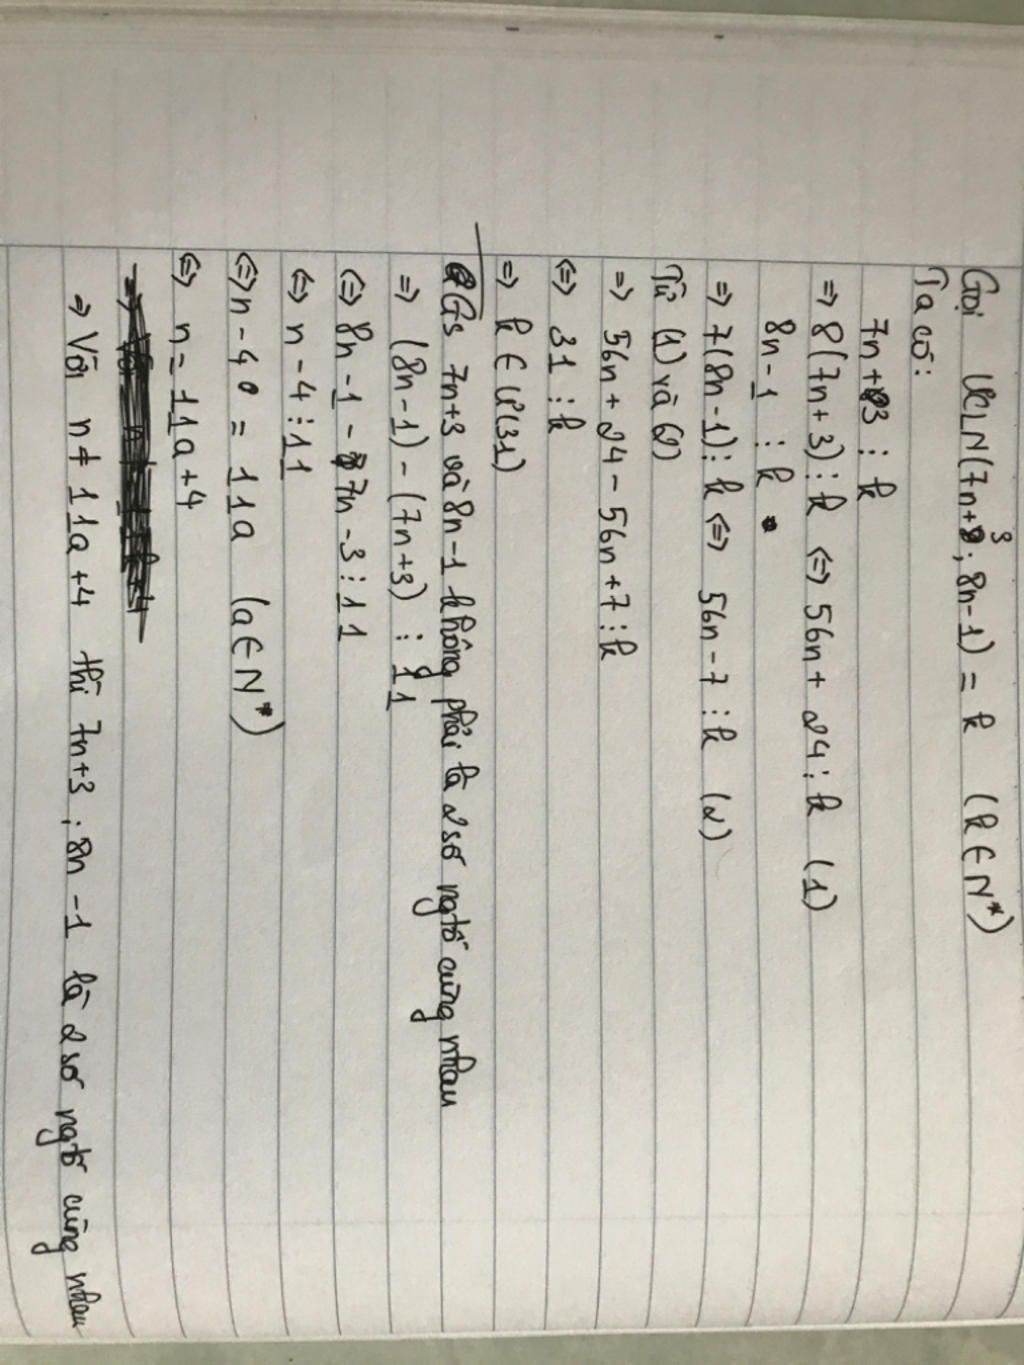 Gọi ƯCLN(7n+3; 8n-1) = k (k ∈ N*)
Ta có:
7n+3 ⋮ k
⇒ 8(7n+3) ⋮ k ⇔ 56n + 24 ⋮ k (1)
8n-1 ⋮ k
⇒ 7(8n-1) ⋮ k ⇔ 56n-7 ⋮ k (2)
Từ (1) và (2)
⇒ 56n + 24 - 56n + 7 ⋮ k
⇔ 31 ⋮ k
⇒ k ∈ Ư(31)
Gs 7n+3 và 8n-1 không phải là 2 số ngtố cùng nhau
⇒ (8n-1) - (7n+3) ⋮ 11
⇔ 8n-1-7n-3 ⋮ 11
⇔ n-4 ⋮ 11
⇔ n-4 = 11a (a ∈ N*)
⇔ n = 11a+4
⇒ Với n ≠ 11a+4 thì 7n+3; 8n-1 là 2 số ngtố cùng nhau